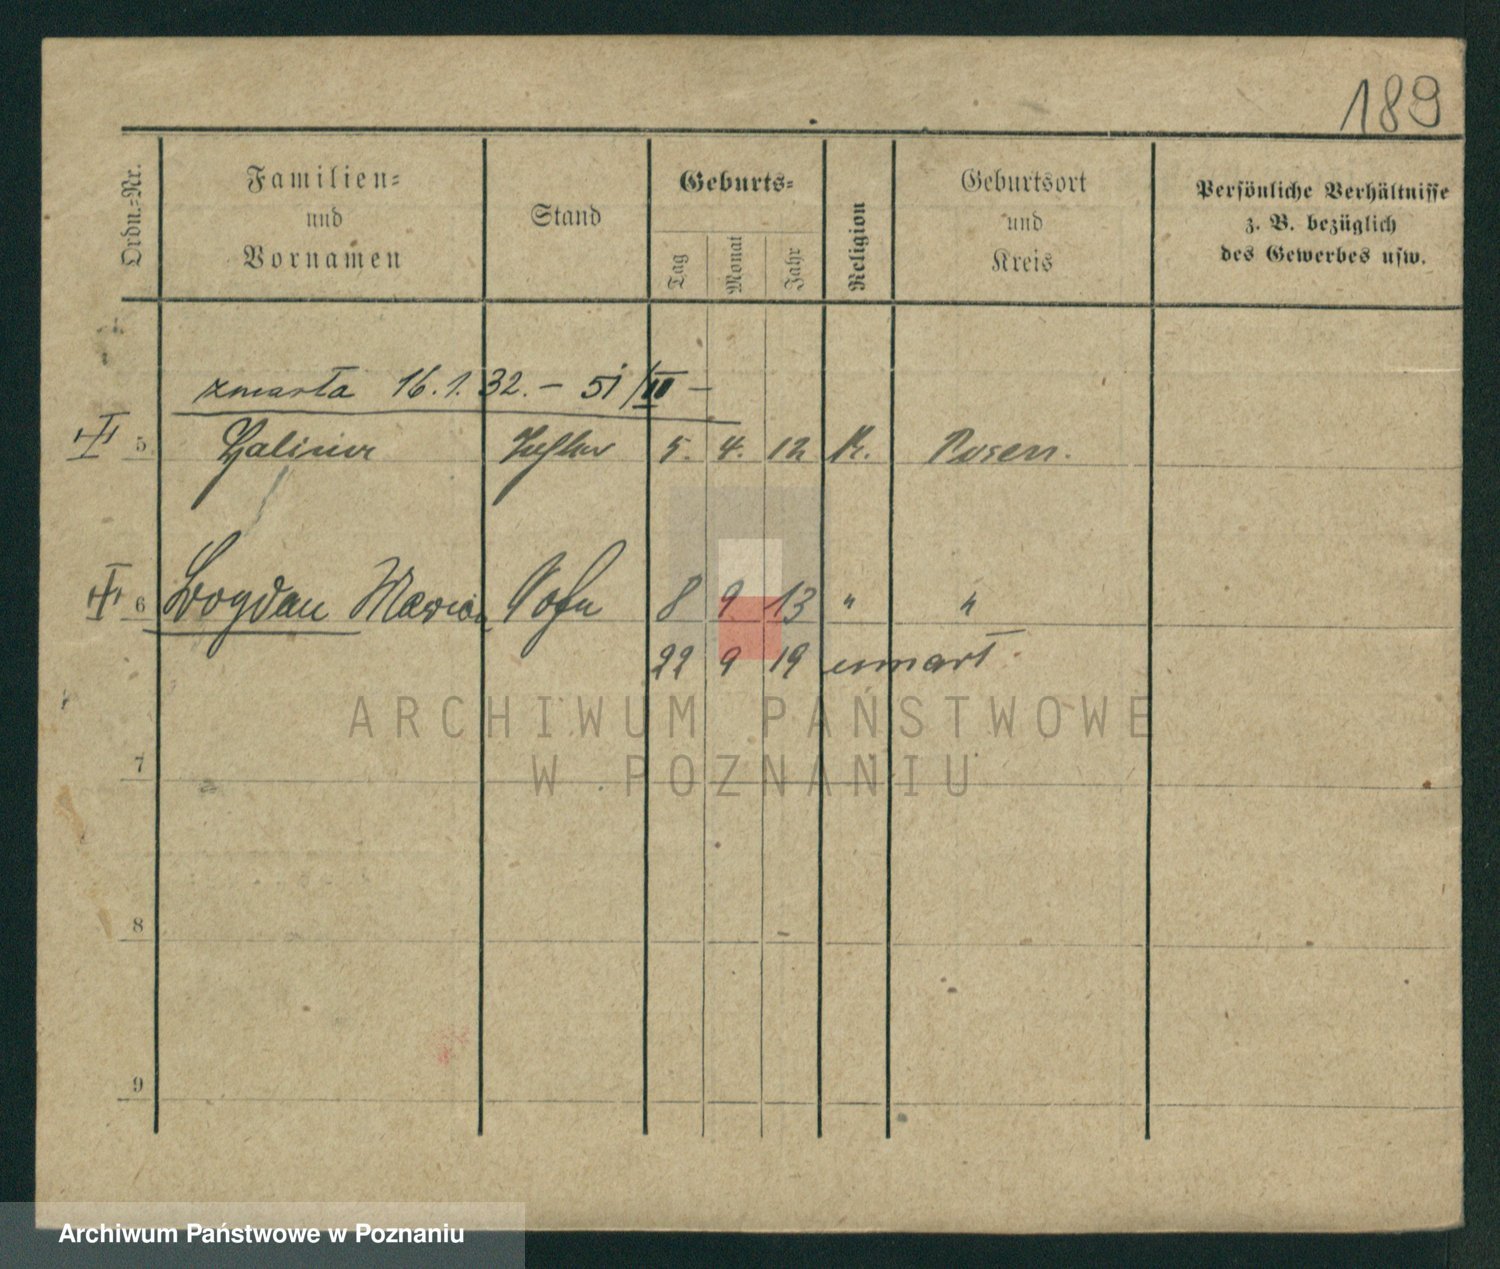 189
Ordn.-Nr.
Familien-
und
Vornamen
Stand
Geburts-
Tag
Monat
Jahr
Religion
Geburtsort
und
Kreis
Persönliche Verhältnisse
z. B. bezüglich
des Gewerbes usw.
zmarła 16.1.32. – 51/III –
5 Halina Tochter 5. 4. 12 K. Posen.
6 Bogdan Marian Sohn 8 9 13 " "
22 9 19 umart
7
8
9
ARCHIWUM PAŃSTWOWE
W POZNANIU
Archiwum Państwowe w Poznaniu